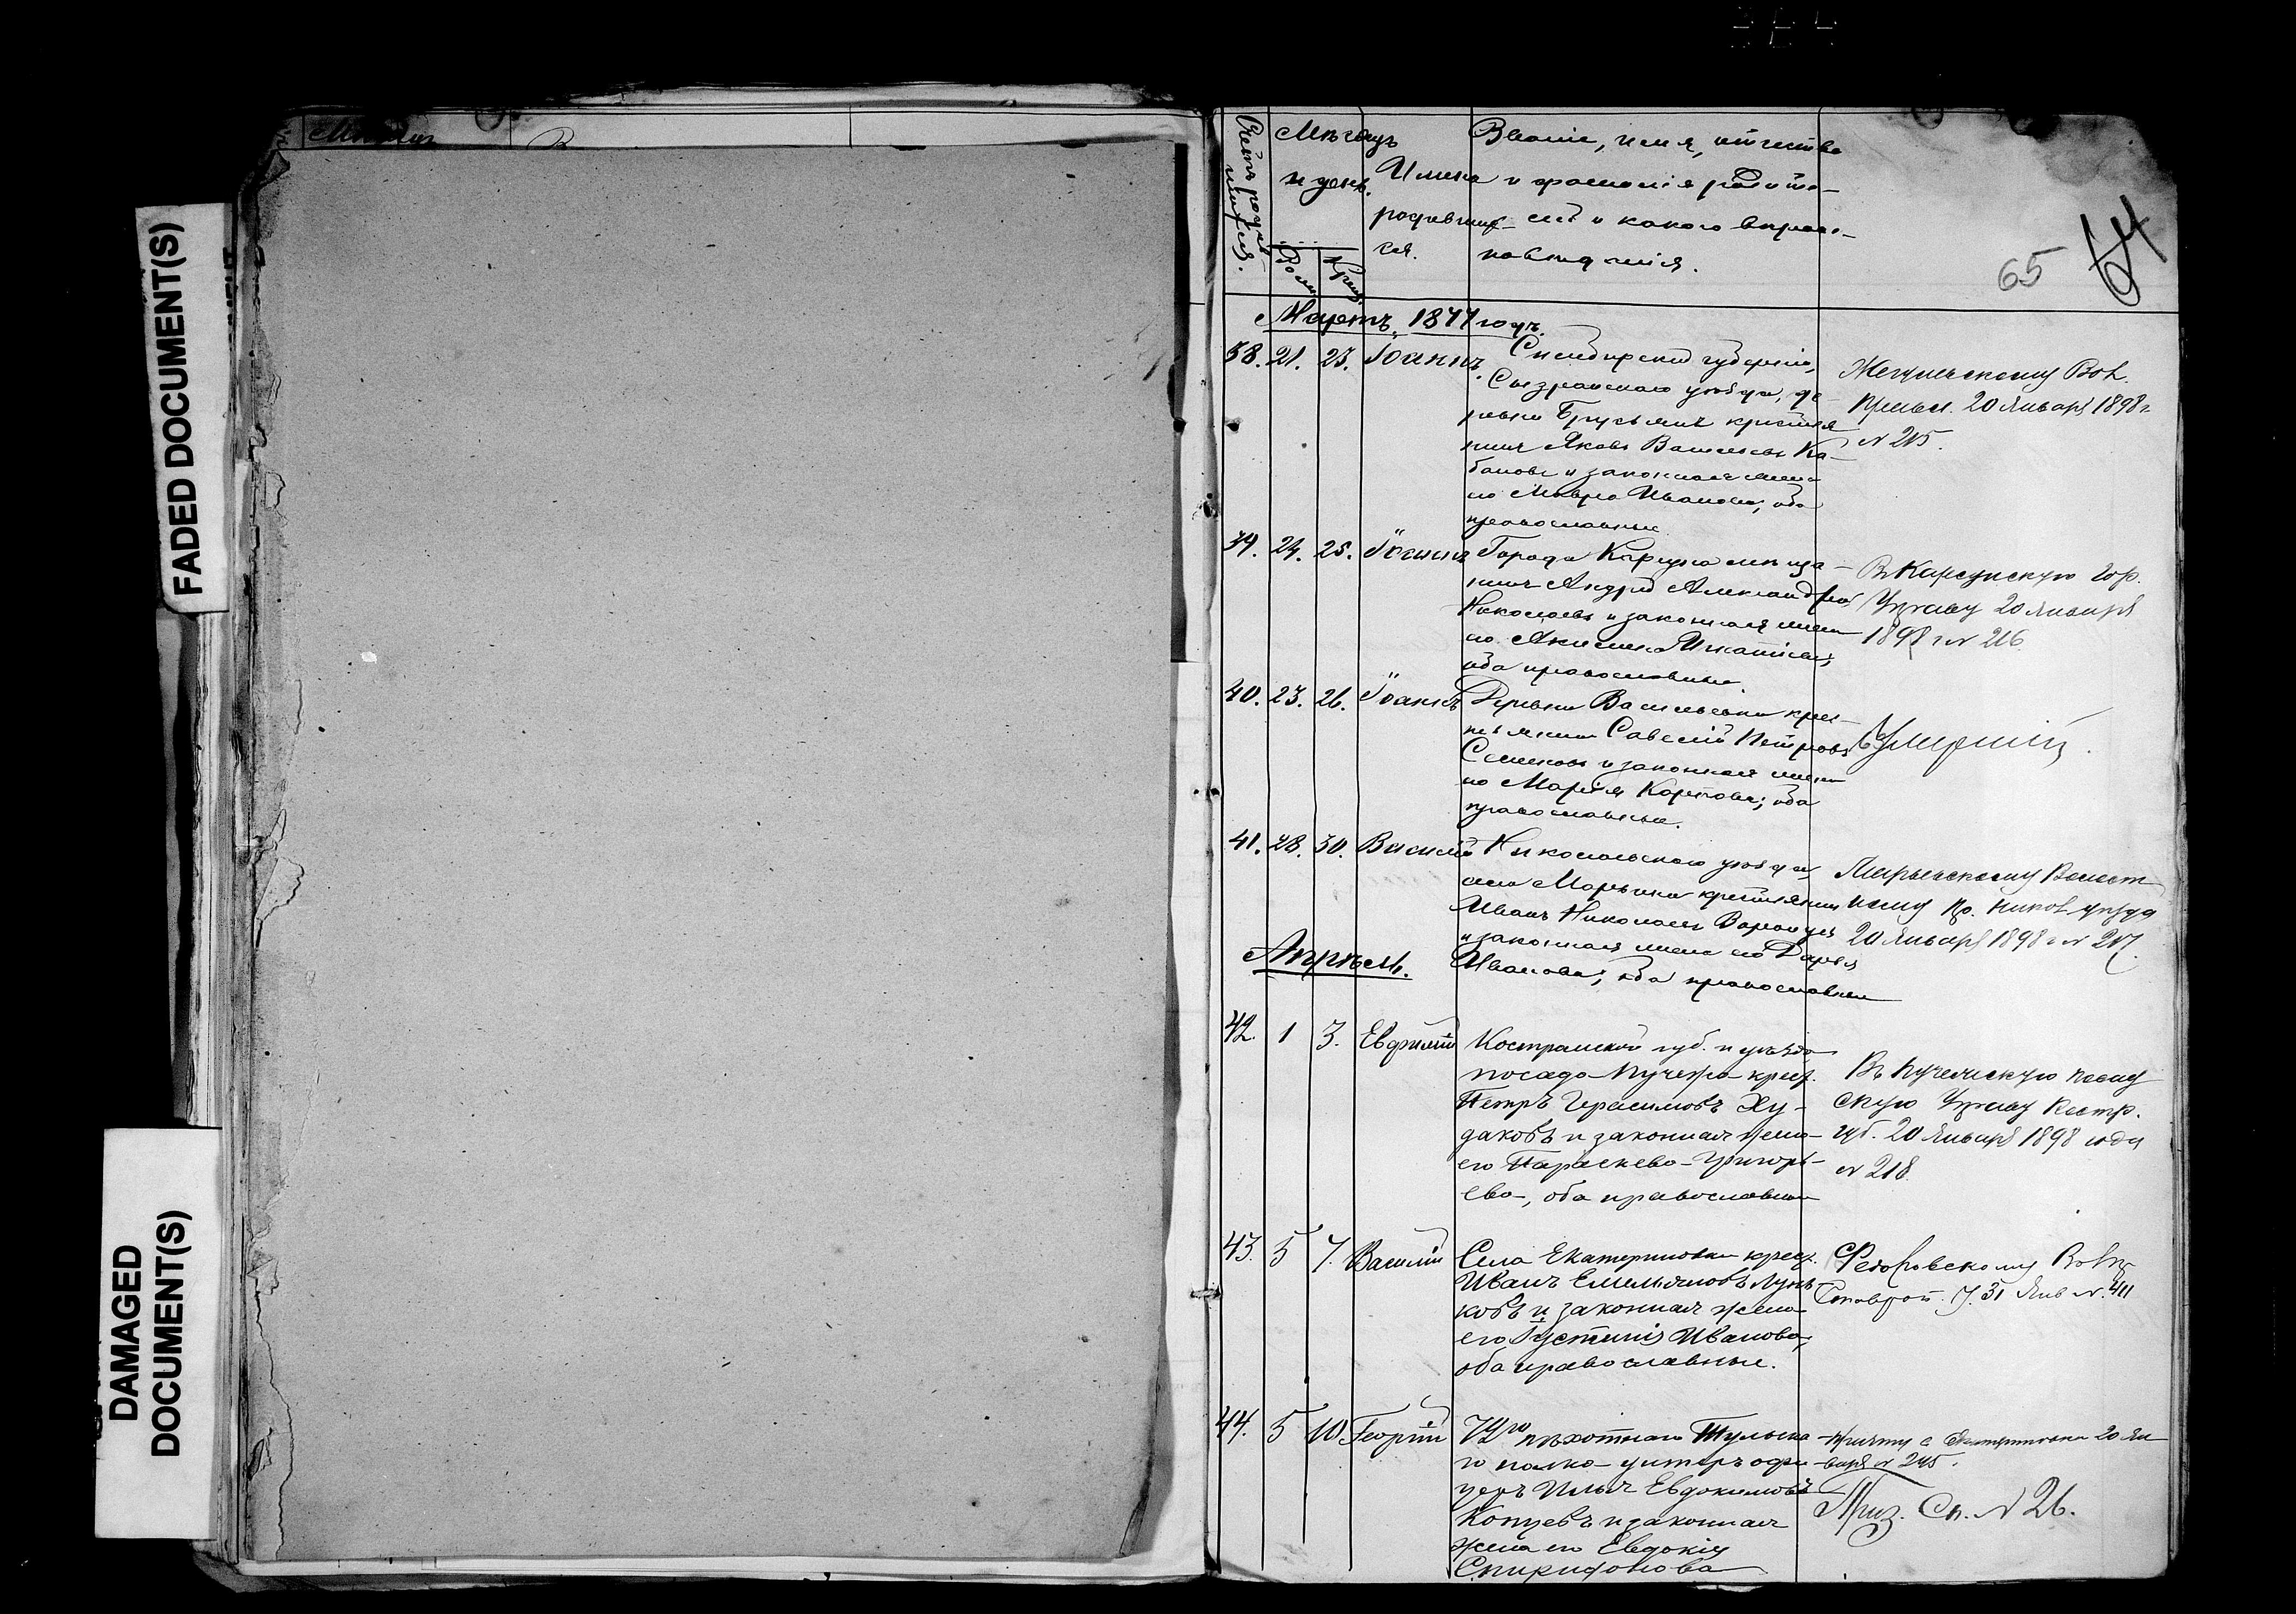 FADED DOCUMENT(S)
DAMAGED
DOCUMENT(S)
65
64
Счетъ родив-
шихся.
Мѣсяцъ
и день.
Рожд.
Крещ.
Имена
родивших-
ся.
Званіе, имя, отчество
и фамилія родите-
лей и какого вѣроис-
повѣданія.
Мартъ, 1877 годъ.
38. 21. 23. Іоаннъ.
Симбирской губерніи,
Сызранскаго уѣзда, де-
ревни Брусянъ крестья
нинъ Яковъ Васильевъ Ка-
бановъ и законная жена
его Мавра Иванова, оба
православные
Жегулевскому Вол.
Правл. 20 Января 1898 г
№ 215.
39. 24. 25. Іоаннъ
Города Карсуна мѣща-
нинъ Андрей Александровъ
Николаевъ и законная жена
его Акилина Игнатіева,
оба православные.
Въ Карсунскую Гор.
Управу 20 Января
1898 г № 216
40. 23. 26. Іоаннъ
Деревни Васильевки крес-
тьянинъ Савелій Петровъ
Семеновъ и законная жена
его Марія Карпова; оба
православные.
Умершій.
41. 28. 30. Василій
Никольскаго уѣзда,
села Марьина крестьянинъ
Иванъ Николаевъ
и законная жена его Дарья
Иванова; оба православные
20 Января 1898 г № 217.
Апрѣль.
42. 1 3. Евфимій
Костромской губ. и уѣзда
посада Пучежа крест.
Петръ Герасимовъ Ху-
даковъ и законная жена
его Параскева Григорь-
ева, оба православные
Въ Пучежскую посад
скую Управу Костр.
губ. 20 Января 1898 года
№ 218.
43. 5 7. Василій
Села Екатериновки крест.
Иванъ Емельяновъ Лунь
ковъ и законная жена
его Іустинія Иванова,
оба православные.
Федоровскому Вол. Пр
Ставроп. у. 31 Янв №. 411
44. 5 10. Георгій
72го пѣхотнаго Тульска
го полка унтеръ офи
церъ Илья Евдокимовъ
Копцевъ и законная
жена его Евдокія
Спиридонова
Причту с Екатериновки 20 Ян
варя № 245.
Приз. Сп. № 26.